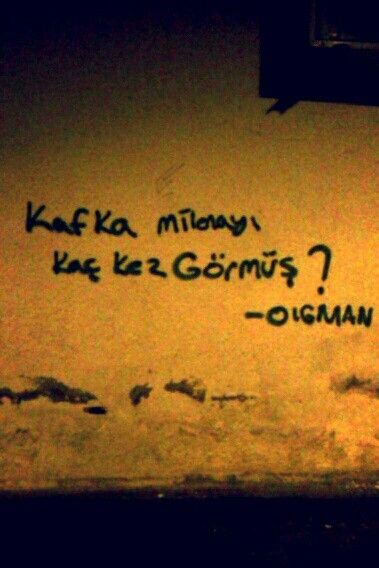 Kafka milenayı
kaç kez Görmüş?
-OIGMAN